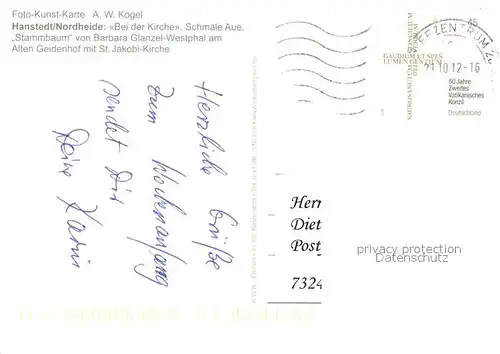 Foto-Kunst-Karte A. W. Kögel
Hanstedt/Nordheide: «Bei der Kirche», Schmale Aue,
„Stammbaum“ von Barbara Glanzel-Westphal am
Alten Geidenhof mit St. Jakobi-Kirche
Herzliche Grüße
zum Wochenanfang
sendet Dir
Deine Karin
45
BRIEFZENTRUM 2
21.10.12-16
GAUDIUM ET SPES
LUMEN GENTIUM
DEI VERBUM
SACROSANCTUM CONCILIUM
50 Jahre
Zweites
Vatikanisches
Konzil
Deutschland
Herr
Diet
Post
7324
privacy protection
Datenschutz